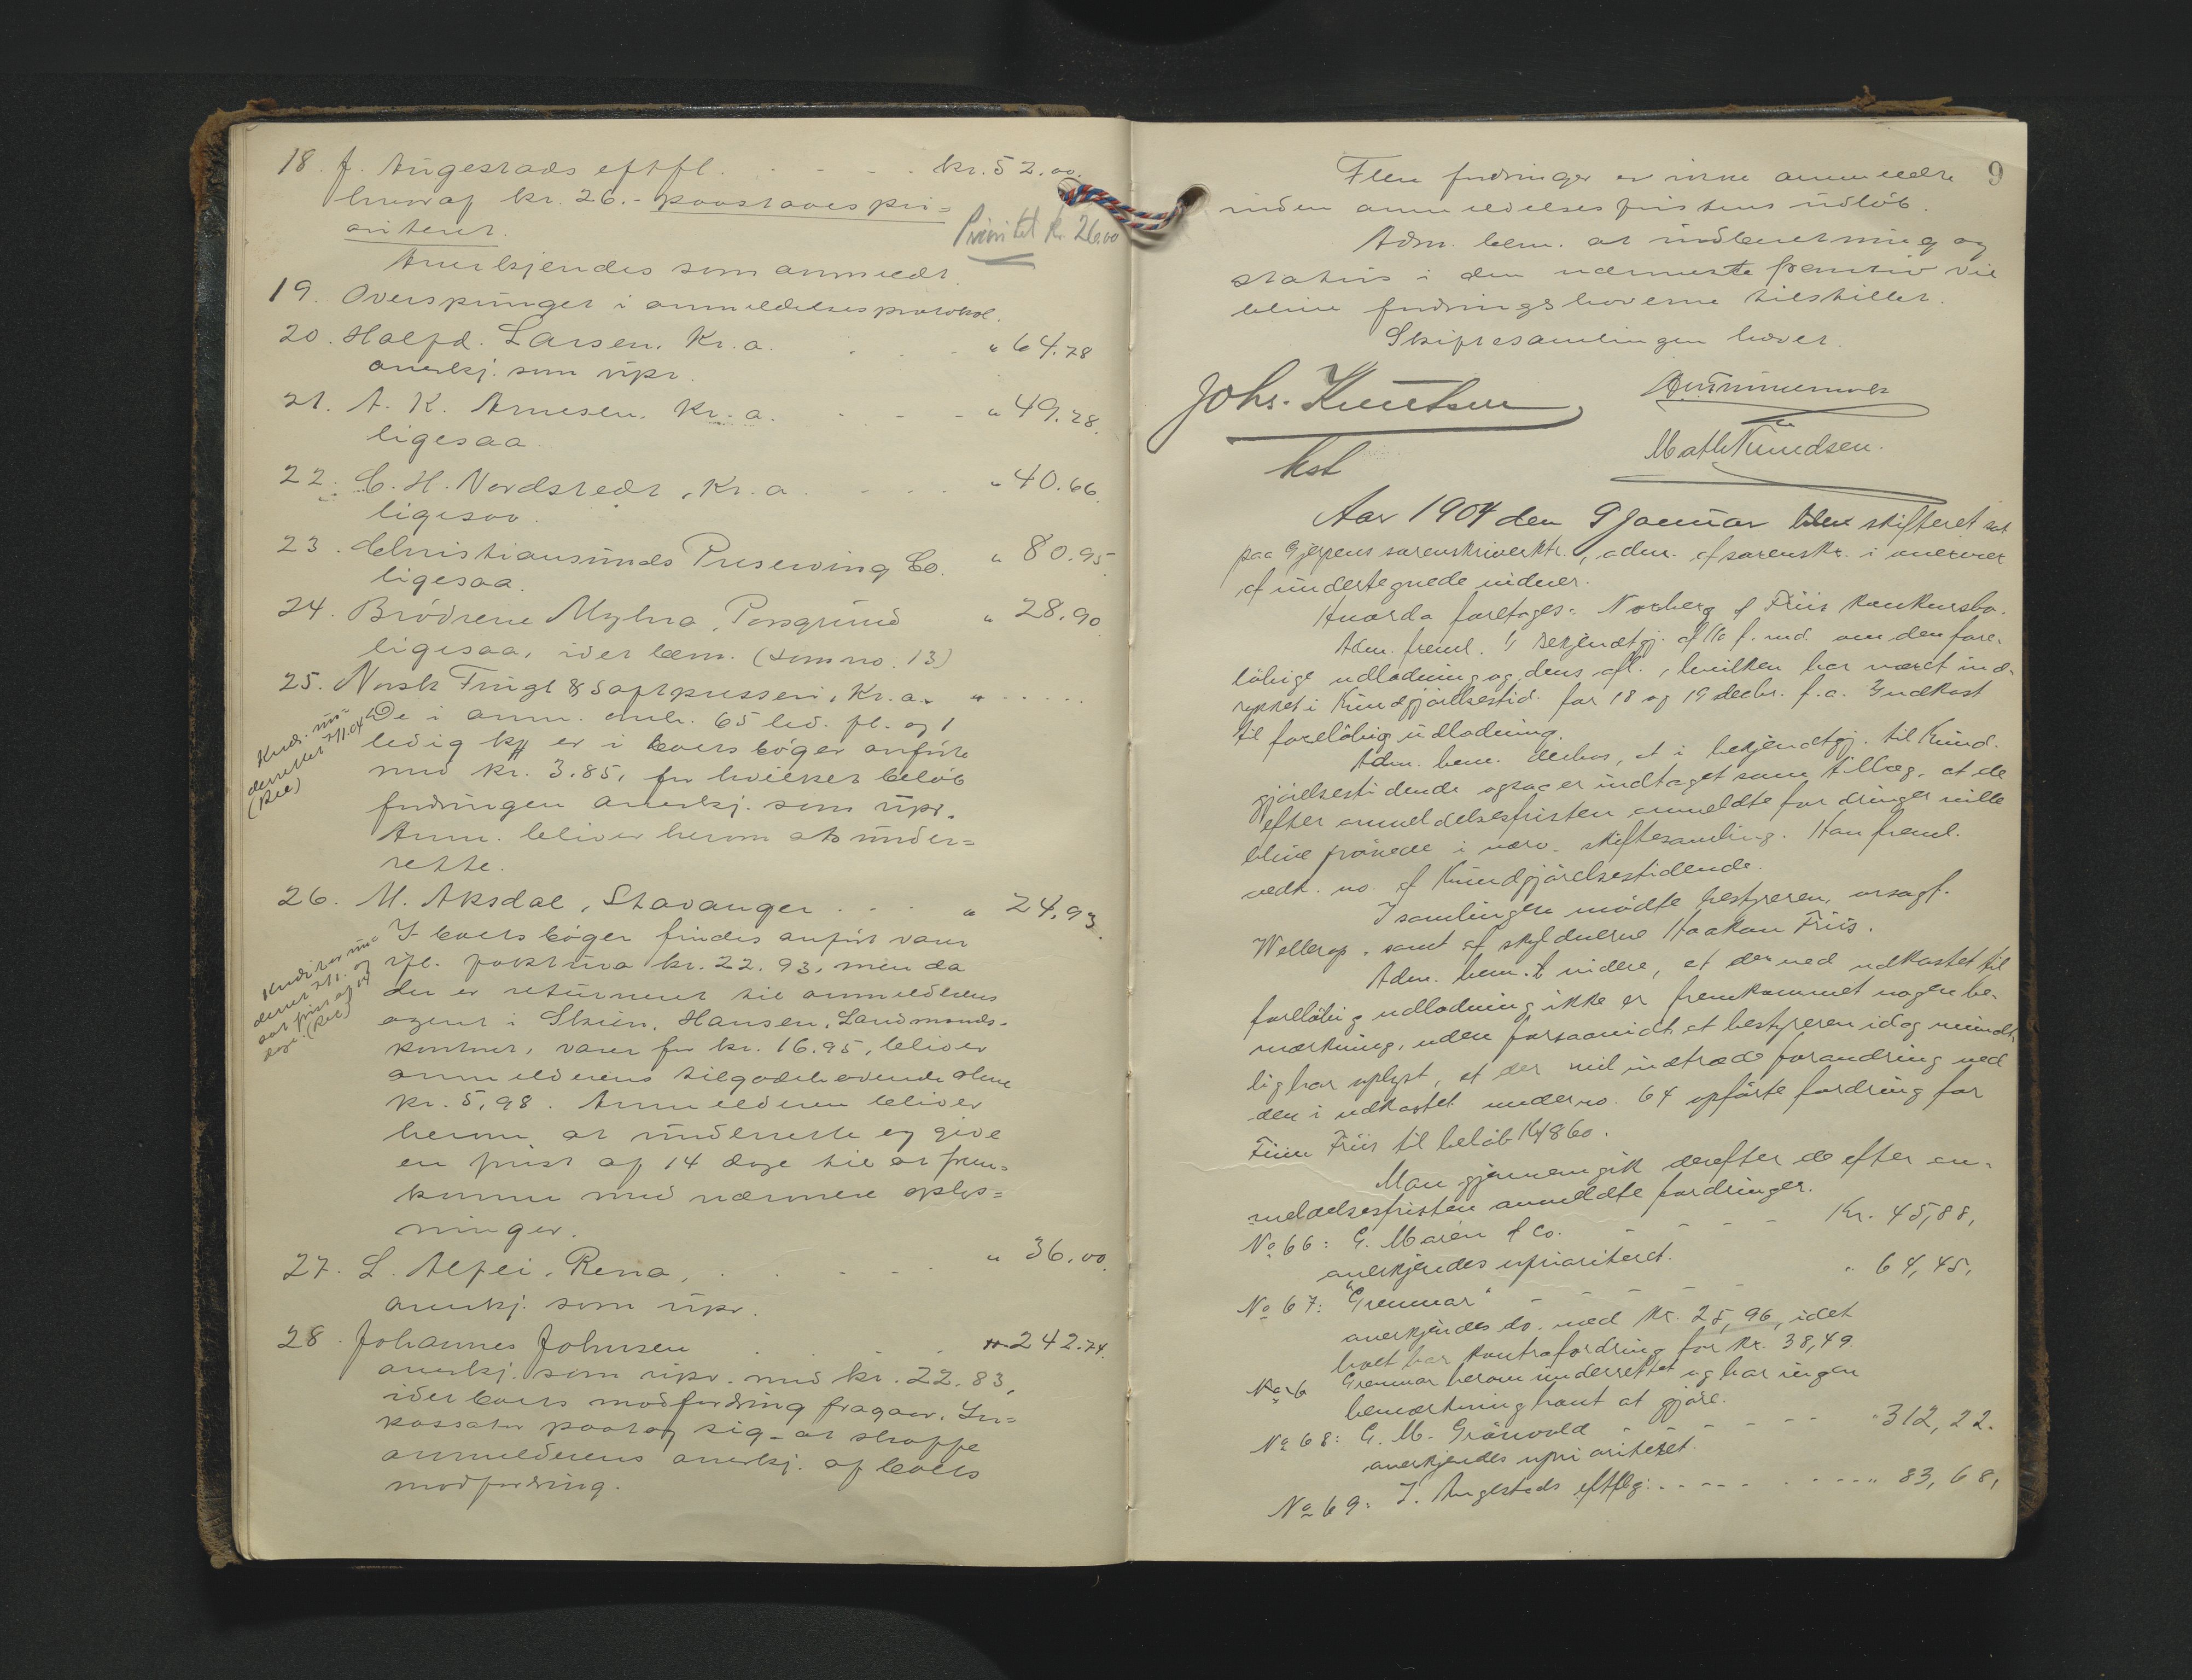 18. J. Augestads eftfl. . - - - kr. 52.00.
hvoraf kr. 26.- paastaaes pri=
oriteret.
Prioritet kr. 26.00
Anerkjendes som anmeldt.
19. Oversprunget i anmeldelsesprotokol.
20. Halfd. Larsen, Kr.a. . . . " 64.78
anerkj. som upr.
21. A. K. Arnesen, Kr.a. - - - " 49.28.
ligesaa
22. C. H. Nordstedt, Kr.a. . . . " 40.66
ligesaa.
23. Christiansunds Preserving Co. " 80.95
ligesaa.
24. Brödrene Myhra, Porsgrund " 28.90
ligesaa, idet bem. (som no. 13)
25. Norsk Frugt & Saftpresseri, Kr.a. " . . . .
De i anm. omh. 65 led. fl. og 1
ledig kg er i boets böger anförte
med kr. 3.85, for hvilket belöb
fordringen anerkj. som upr.
Anm. bliver herom at under=
rette.
Kred. un=
derrettet 7/1.04
(Rec)
26. M. Aksdal, Stavanger . . . " 24.93.
I boets böger findes anfört varer
ifl. faktura kr. 22.93, men da
der er returneret til anmelderens
agent i Skien, Hansen, Landmands-
kontoret, varer for kr. 16.95, bliver
anmelderens tilgodehavende alene
kr. 5,98. Anmelderen bliver
herom at underrette og give
en frist af 14 dage til at frem-
komme med nærmere oplys=
ninger.
Kredit er un=
derret 7/1. og
sat frist af 14
dage. (Rec)
27. L. Alfei, Rena, . . - - - " 36.00.
anerkj. som upr.
28. Johannes Johnsen . . . " 242.74.
anerkj. som upr. med kr. 22.83,
idet boets modfordring fragaar. In=
kassator paatog sig at skaffe
anmelderens anerkj. af boets
modfordring.
9
Flere fordringer er ikke anmeldte
inden anmeldelsesfristens udlöb.
Adm. bem. at indberetning og
status i den nærmeste fremtid vil
blive fordringshaverne tilstillet.
Skiftesamlingen hævet.
Johs. Knutsen
kst
Math Knudsen.
Aar 1904 den 9 Januar blev skifteret sat
paa Gjerpens sorenskriverktr., adm. af sorenskr. i overvær
af undertegnede vidner.
Hvorda foretages: Norberg & Friis konkursbo.
Adm. freml. 1/ Bekjendtgj. af 16 f. md. om den fore-
löbige udlodning og dens afl., hvilken har været ind-
rykket i Kundgjörelsestid. for 18 og 19 decbr. f. a. Indkast
til forelöbig udlodning.
Adm. bem. derhos, at i bekjendtgj. til Kund-
gjörelsestidende ogsaa er indtaget som tillæg, at de
efter anmeldelsesfristen anmeldte fordringer ville
blive prövede i nærv. skiftesamling. Han freml.
vedk. no. af Kundgjörelsestidende.
I samlingen mödte bestyreren, orsagf.
Wellerop, samt af skyldnerne Haakon Friis.
Adm. bem. videre, at der ved udkastet til
forelöbig udlodning ikke er fremkommet nogen be-
mærkning, uden forsaavidt, at bestyreren idag mundt-
lig har oplyst, at der vil indtræde forandring ved
den i udkastet under no. 64 opförte fordring for
Finn Friis til belöb 164860.
Man gjennemgik derefter de efter an-
meldelsesfristen anmeldte fordringer.
No 66: G. Marën & Co. - - - - - Kr. 45,88,
anerkjendes uprioriteret.
No 67: "Grenmar" - - - - - " 64,45,
anerkjendes do. med kr. 25,96, idet
boet har kontrafordring for kr. 38,49.
Grenmar herom underrettet og har ingen
bemærkning hertil at gjöre.
No 68: G. M. Grönvold - - - - - " 312,22.
anerkjendes uprioriteret.
No 69: J. Augestads eftflg: - - - - - - " 83,68,